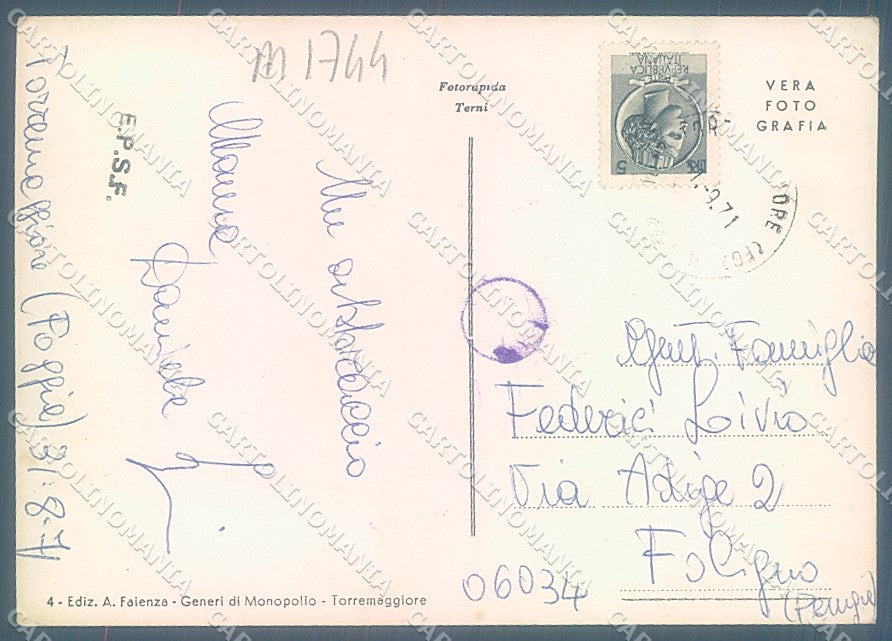 m 1744
Fotorapida
Terni
VERA
FOTO
GRAFIA
REPVBBLICA
ITALIANA
POSTE
LIRE 5
-9.71
ORE (FG)
E.P.S.F.
Torremaggiore (Foggia) 31.8.7
Un abbraccio
Mauro
Daniela
Gent. Famiglia
Federici Livio
Via Adige 2
06034 Foligno
(Perugia)
4 - Ediz. A. Faienza - Generi di Monopolio - Torremaggiore
CARTOLINOMANIA